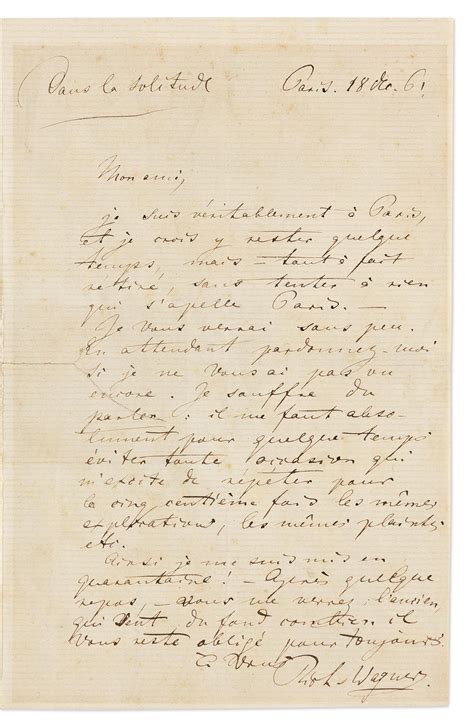 Dans la Solitude
Paris. 18 déc. 61
Mon ami,
je suis véritablement à Paris,
et je crois y rester quelque
temps, mais – tout à fait
rétiré, sans tenter à rien
qui s'apelle Paris. –
Je vous verrai sans peu.
En attendant pardonnez-moi
si je ne vous ai pas vu
encore. Je souffre du
parler: il me faut abso-
lument pour quelque temps
éviter toute occasion qui
m'excite de répéter pour
la cinq centième fois les mêmes
explorations, les mêmes plaintes
etc.
Ainsi je me suis mis en
quarantaine! – Après quelque
repos, – vous me verrez: l'ancien
qui sent du fond combien il
vous reste obligé pour toujours.
à Vous
Rich. Wagner